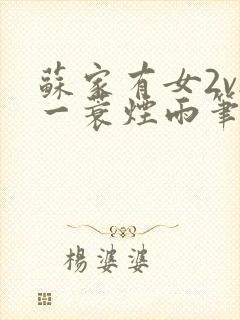 蘇家有女2v
一蓑煙雨筆
楊婆婆